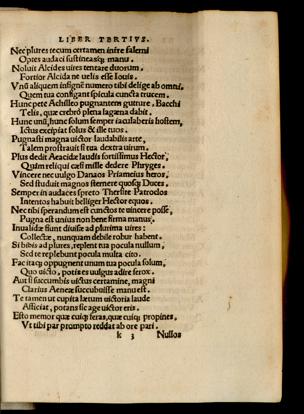 LIBER TERTIVS.
Nec plures tecum certamen inire falerni
Optes audaci sustineasq; manu.
Noluit Alcides uires tentare duorum,
Fortior Alcida ne uelis esse Iouis.
Vnũ aliquem insignẽ numero tibi delige ab omni,
Quem tua configant spicula cuncta trucem.
Hunc pete Achilleo pugnantem gutture, Bacchi
Telis, quæ crebro plena lagæna dabit.
Hunc unũ, hunc solum semper iaculaberis hostem,
Ictus excipiat solus & ille tuos.
Pugnasti magna uictor laudabilis arte,
Talem prostrauit si tua dextra uirum.
Plus dedit Aeacidæ laudis fortissimus Hector,
Quàm reliqui cæsi mille dedere Phryges.
Vincere nec uulgo Danaos Priameius heros,
Sed studuit magnos sternere quosq; Duces.
Semper in audaces spreto Thersite Patroclos
Intentos habuit belliger Hector equos.
Nec tibi sperandum est cunctos te uincere posse,
Pugna est unius non bene firma manus.
Inualidæ fiunt diuisæ ad plurima uires:
Collectæ, nunquam debile robur habent.
Si bibis ad plures, replent tua pocula nullum,
Sed te replebunt pocula multa cito.
Fac itaq; oppugnent unum tua pocula solum,
Quo uicto, potis es uulgus adire ferox.
Aut si succumbis uictus certamine, magni
Clarius Aeneæ succubuisse manu est.
Te tamen ut cupita lætum uictoria laude
Afficiat, potans sic age uictor eris.
Esto memor quæ cuiq; feras, quæ cuiq; propines,
Vt tibi par prompto reddat ab ore pari.
k 3 Nullos